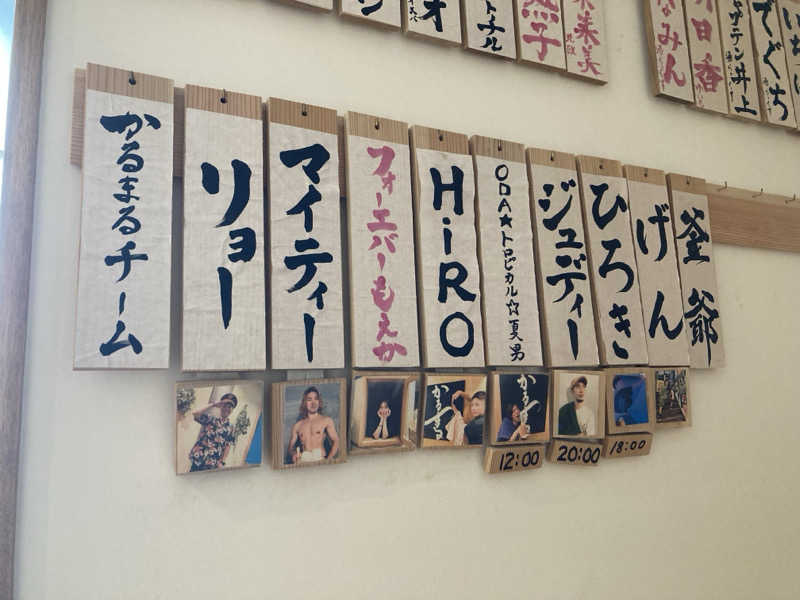 かるまるチーム
リョー
マイティー
フォーエバーもえか
HiRO
ODA★トロピカル☆夏男
ジュディー
ひろき
げん
釜爺
12:00
20:00
18:00
かるまる
かるまる
なみん
井上
でぐち